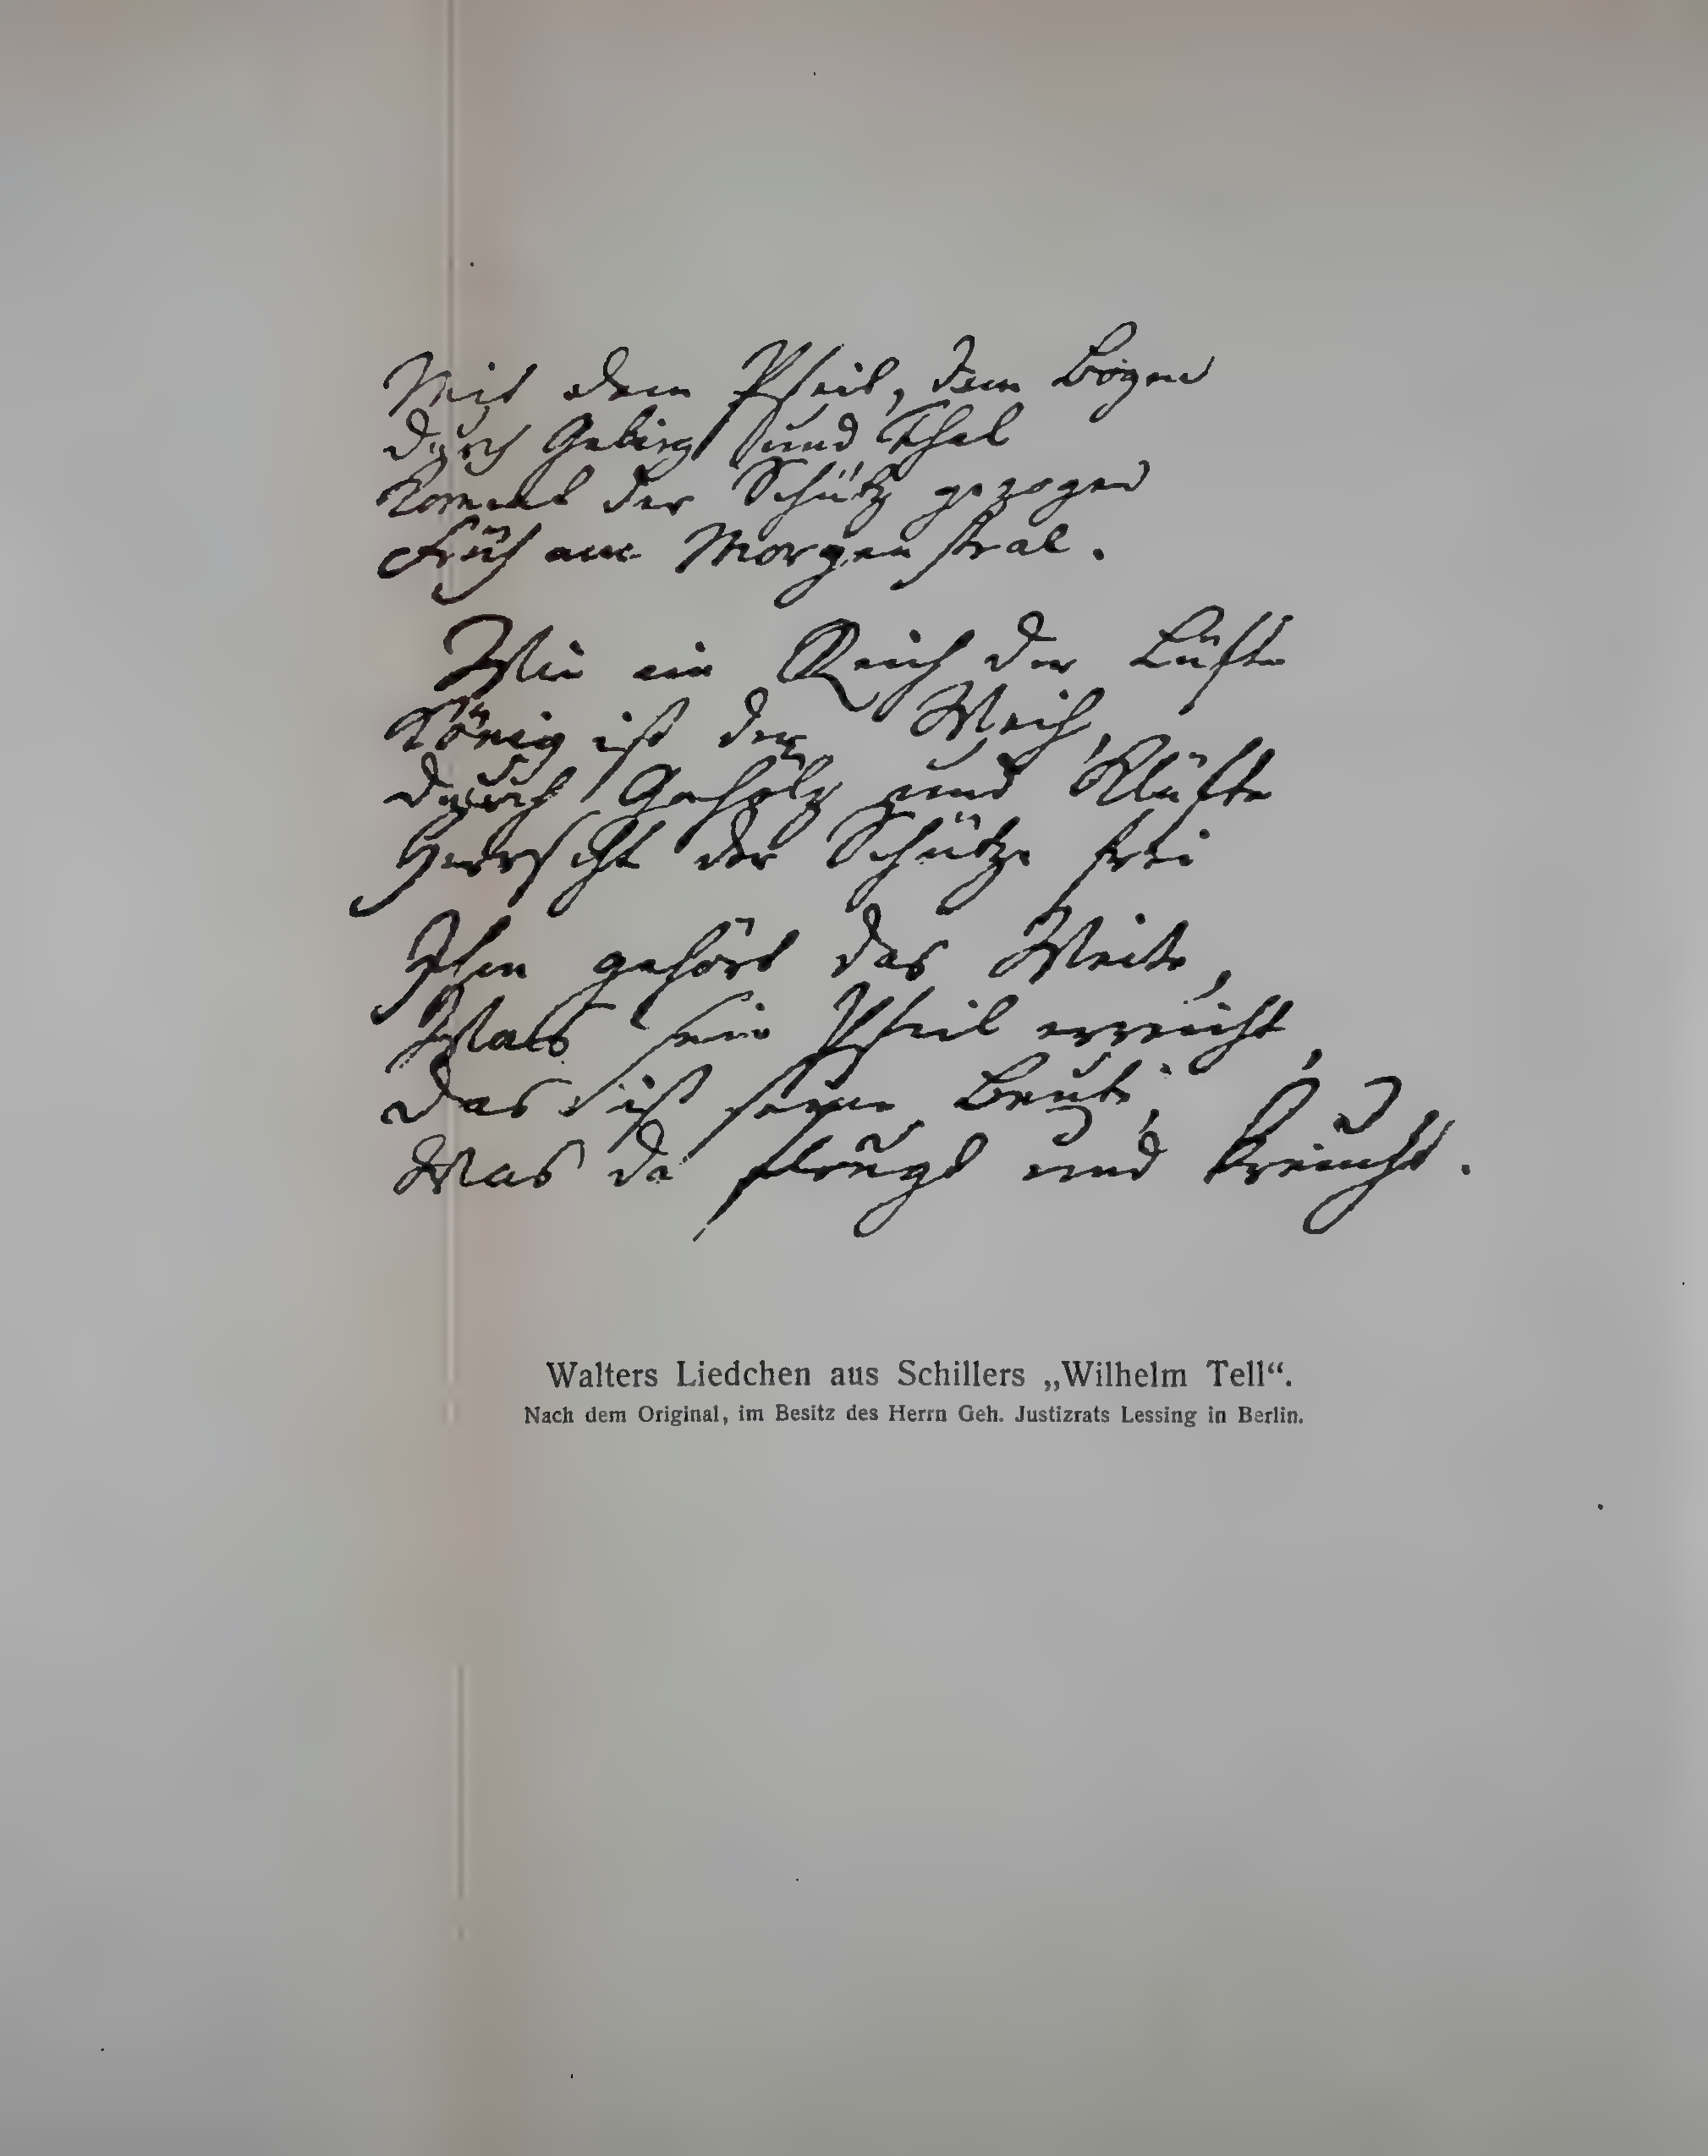 Mit dem Pfeil, dem Bogen
durch Gebirg und Thal
Kommt der Schütz gezogen
früh am Morgenstral.
Wie im Reich der Lüfte
König ist der Weih,
durch Gehölz und Klüfte
Herrscht der Schütze frei
Ihm gehört das Weite,
Was sein Pfeil erreicht,
das ist seine Beute,
Was da fleugt und kreucht.
Walters Liedchen aus Schillers „Wilhelm Tell“.
Nach dem Original, im Besitz des Herrn Geh. Justizrats Lessing in Berlin.